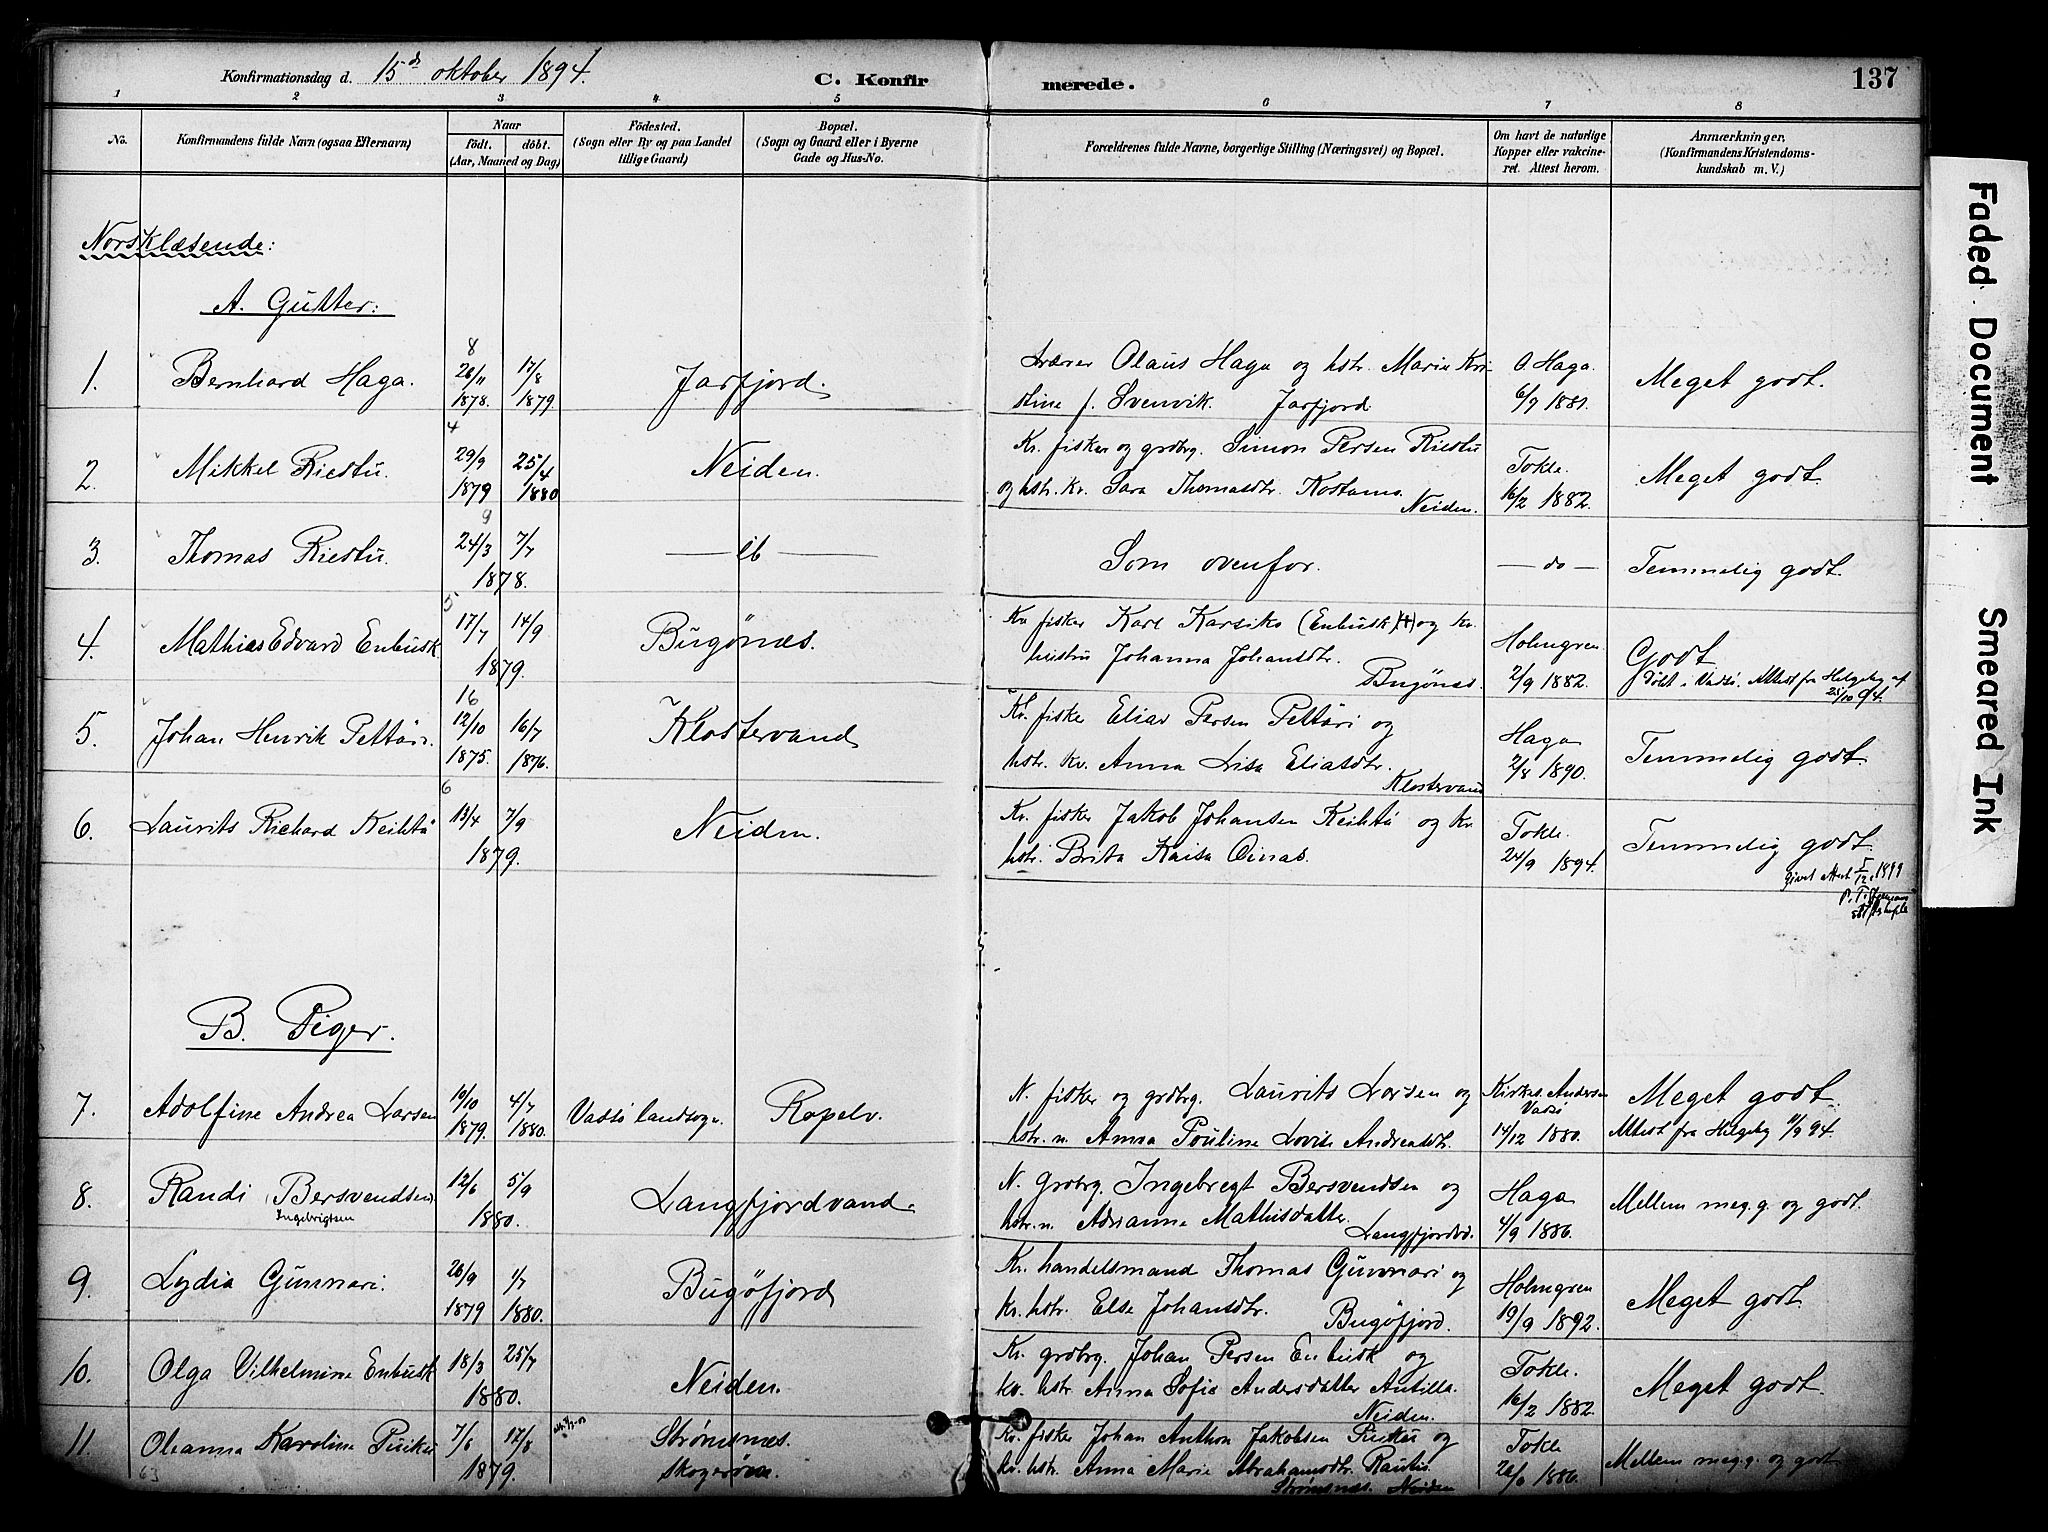 Konfirmationsdag d. 15de oktober 1894.
C. Konfirmerede.
137
1 2 3 4 5 6 7 8
No.
Konfirmandens fulde Navn (ogsaa Efternavn)
Naar
født. døbt.
(Aar, Maaned og Dag)
Fødested.
(Sogn eller By og paa Landet
tillige Gaard)
Bopæl.
(Sogn og Gaard eller i Byerne
Gade og Hus-No.
Forældrenes fulde Navne, borgerlige Stilling (Næringsvei) og Bopæl.
Om havt de naturlige
Kopper eller vakcine-
ret. Attest herom.
Anmærkninger,
(Konfirmandens Kristendoms-
kundskab m. V.)
Norsklæsende:
A. Gutter:
1. Bernhard Haga. 8 26/11 1878. 17/8 1879. Jarfjord.
Lærer Olaus Haga og hstr. Marie Kri-
stine f. Svenvik. Jarfjord
O. Haga. 6/9 1881.
Meget godt.
2. Mikkel Riestu. 4 29/9 1879 25/4 1880 Neiden.
Kv. fisker og grdbrg. Simon Persen Riestu
og hstr. kv. Sara Thomasdtr. Kostamo. Neiden.
Tokle. 16/2 1882.
Meget godt.
3. Thomas Riestu. 9 24/3 7/7 1878. — ib —
Som ovenfor.
— do —
Temmelig godt.
4. Mathias Edvard Enbusk. 5 17/7 14/9 1879. Bugönæs.
Kv. fisker Karl Karsiko (Enbusk) og kv.
hustru Johanna Johansdtr. Bugönæs.
Holmgren 2/9 1882.
Godt
Döbt i Vadsö. Attest fra Helgeby af
25/10 94.
5. Johan Henrik Pettäri. 16 12/10 1875. 16/7 1876. Klostervand
Kv. fisker Elias Persen Pettäri og
hstr. kv. Anna Lisa Eliasdtr. Klostervand
Haga 2/8 1890.
Temmelig godt.
6. Laurits Richard Keihtö 6 13/4 7/9 1879. Neiden.
Kv. fisker Jakob Johansen Keihtö og kv.
hstr. Brita Kaisa Oinas.
Tokle. 24/9 1894.
Temmelig godt.
Givet attest 5/12 1899
B. Piger.
7. Adolfine Andrea Larsen 10/10 1879. 4/7 1880. Vadsö landsogn. Ropelv.
N. fisker og grdbrg. Laurits Larsen og
hstr. n. Anna Pouline Lovise Andreasdtr.
Kirkes. Andersen
Vadsö
14/12 1880.
Meget godt.
Attest fra Helgeby 11/9 94.
8. Randi Bersvendsen 12/6 5/9 1880. Langfjordvand.
Ingebrigtsen
N. grdbrg. Ingebregt Bersvendsen og
hstr. n. Adrianna Mathisdatter. Langfjordvd.
Haga 4/9 1886.
Mellem meg. g. og godt.
9. Lydia Gunnari. 26/9 1879 1/7 1880. Bugöfjord
Kv. handelsmand Thomas Gunnari og
kv. hstr. Else Johansdtr. Bugöfjord.
Holmgren 19/9 1892.
Meget godt.
10. Olga Vilhelmine Enbusk 18/3 25/7 1880. Neiden.
Kv. grdbrg. Johan Persen Enbusk og
kv. hstr. Anna Sofie Andersdatter Antilla. Neiden.
Tokle. 16/2 1882.
Meget godt.
11. Oleanna Karoline 7/6 17/8 1879. Strømsnæs.
Skogerøen.
Kv. fisker Johan Anthon Jakobsen og
kv. hstr. Anna Marie Abrahamsdtr. Rautio
Strømsnæs. Neiden
Tokle 1886.
Mellem meg. g. og godt.
Faded Document
Smeared Ink